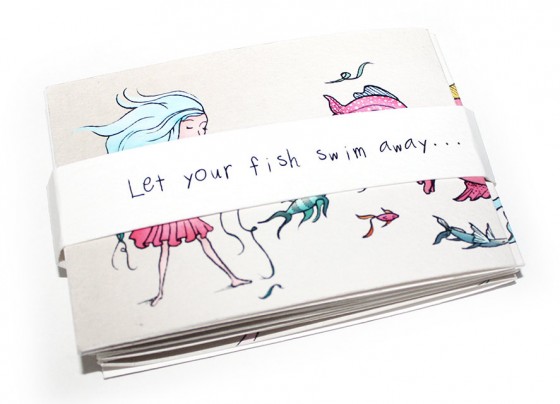 Let your fish swim away...